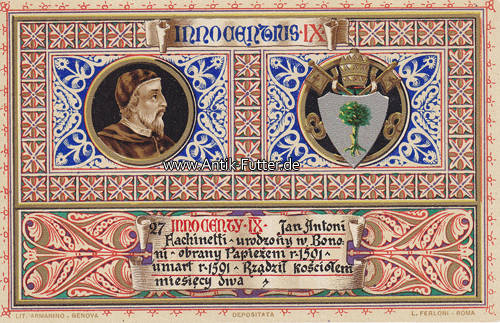 INNOCENTNIS·IX
www.Antik-Futter.de
27. INNOCENTY·IX· Jan Antoni
Fachinetti - urodzony w Bono-
ni - obrany Papieżem r·1591·
umarł r·1591· Rządził kościołem
miesięcy dwa
LIT. ARMANINO - GENOVA
DEPOSITATA
L. FERLONI - ROMA